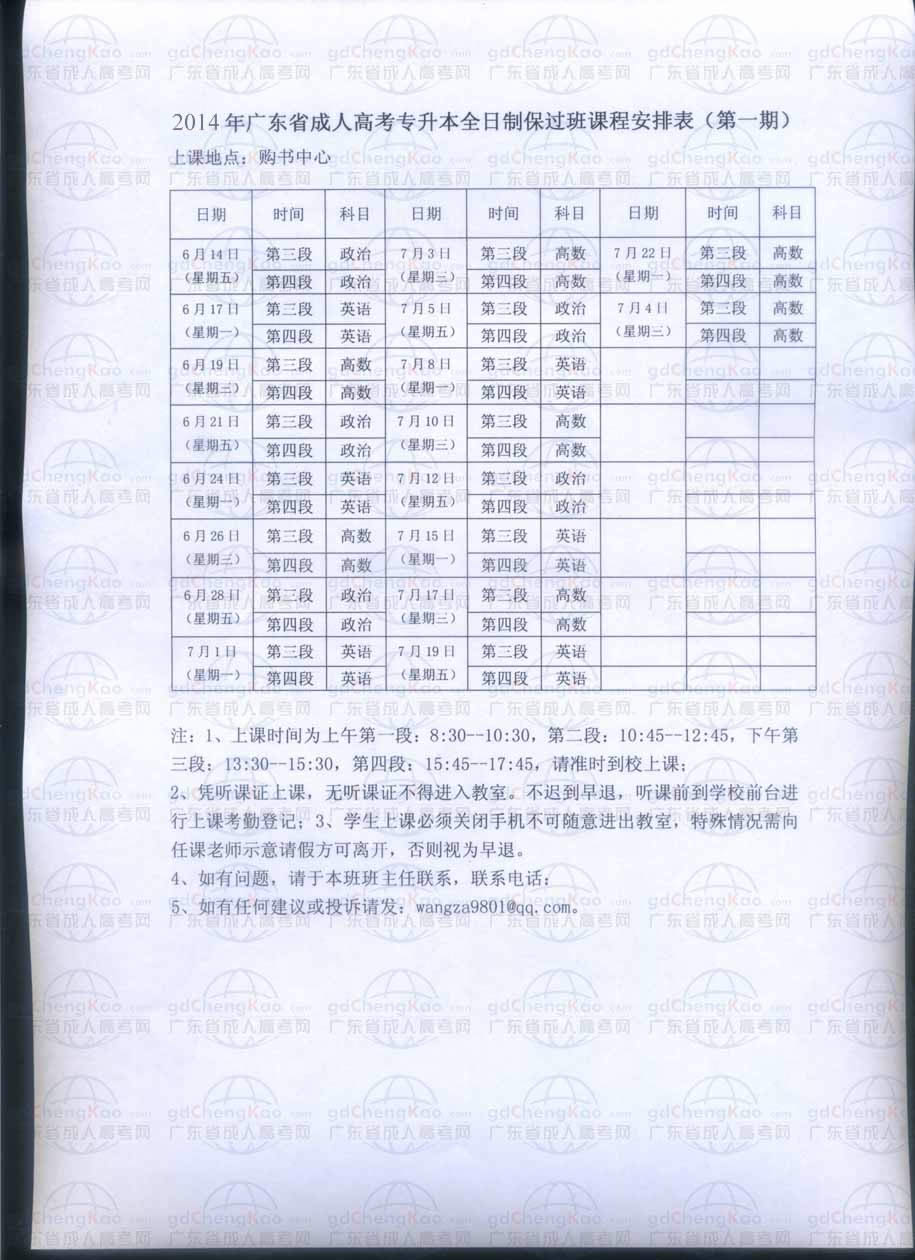 2014年广东省成人高考专升本全日制保过班课程安排表（第一期）
上课地点：购书中心
日期 时间 科目 日期 时间 科目 日期 时间 科目
6月14日 第三段 政治 7月3日 第三段 高数 7月22日 第三段 高数
（星期五） 第四段 政治 （星期三） 第四段 高数 （星期一） 第四段 高数
6月17日 第三段 英语 7月5日 第三段 政治 7月4日 第三段 高数
（星期一） 第四段 英语 （星期五） 第四段 政治 （星期三） 第四段 高数
6月19日 第三段 高数 7月8日 第三段 英语
（星期三） 第四段 高数 （星期一） 第四段 英语
6月21日 第三段 政治 7月10日 第三段 高数
（星期五） 第四段 政治 （星期三） 第四段 高数
6月24日 第三段 英语 7月12日 第三段 政治
（星期一） 第四段 英语 （星期五） 第四段 政治
6月26日 第三段 高数 7月15日 第三段 英语
（星期三） 第四段 高数 （星期一） 第四段 英语
6月28日 第三段 政治 7月17日 第三段 高数
（星期五） 第四段 政治 （星期三） 第四段 高数
7月1日 第三段 英语 7月19日 第三段 英语
（星期一） 第四段 英语 （星期五） 第四段 英语
注：1、上课时间为上午第一段：8:30--10:30，第二段：10:45--12:45，下午第
三段：13:30--15:30，第四段：15:45--17:45，请准时到校上课；
2、凭听课证上课，无听课证不得进入教室。不迟到早退，听课前到学校前台进
行上课考勤登记；3、学生上课必须关闭手机不可随意进出教室，特殊情况需向
任课老师示意请假方可离开，否则视为早退。
4、如有问题，请于本班班主任联系，联系电话：
5、如有任何建议或投诉请发：wangza9801@qq.com。
gdChengKao.com
广东省成人高考网